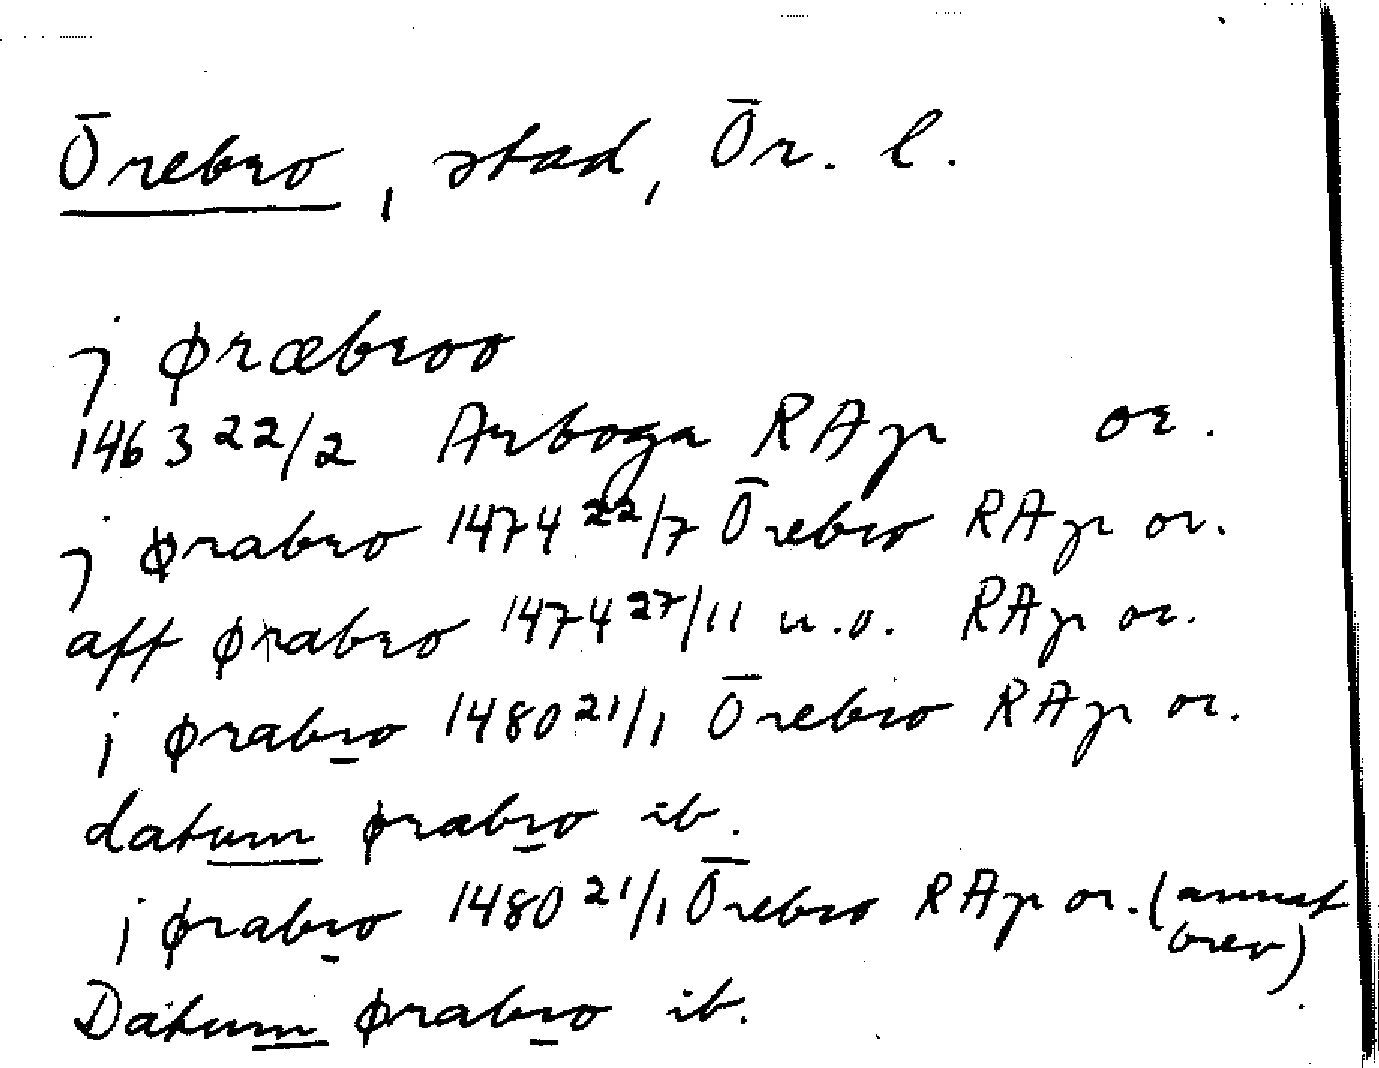 Örebro, stad, Ör. l.
j øræbroo
1463 22/2 Arboga RAp or.
j ørabro 1474 22/7 Örebro RAp or.
aff ørabro 1474 27/11 u.o. RAp or.
j ørabro 1480 21/1 Örebro RAp or.
datum ørabro ib.
j ørabro 1480 21/1 Örebro RAp or. (annat
brev)
Datum ørabro ib.